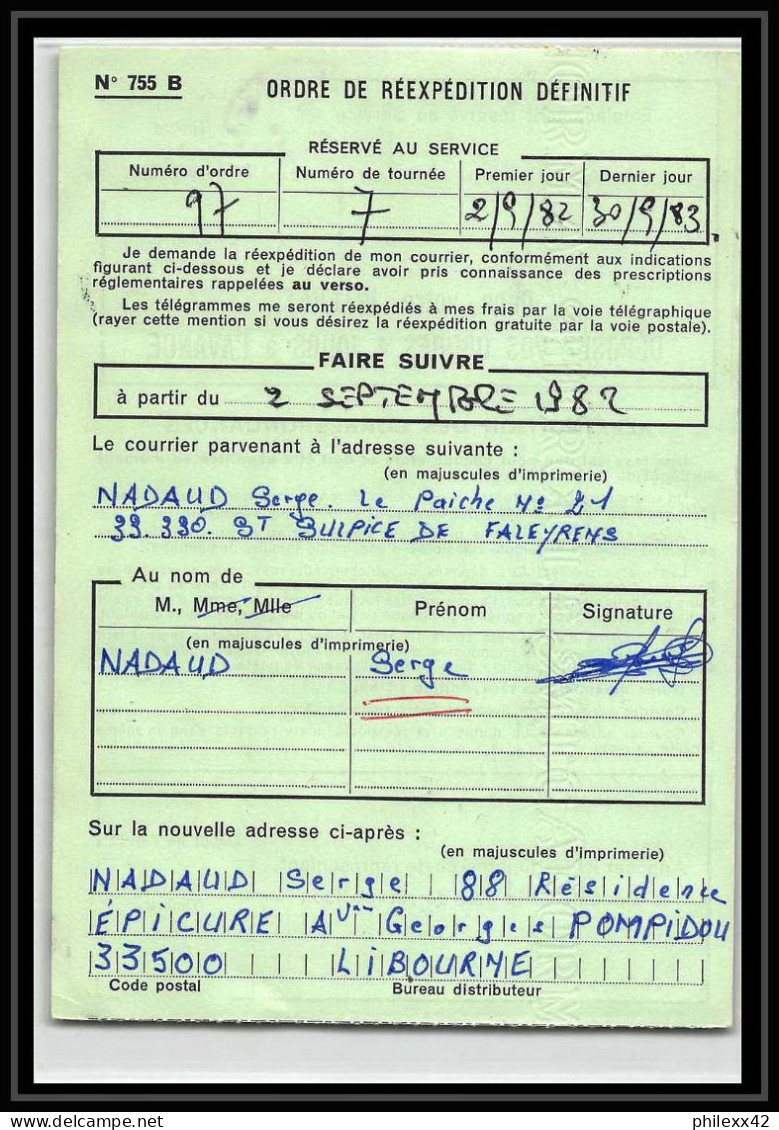 N° 755 B ORDRE DE RÉEXPÉDITION DÉFINITIF
RÉSERVÉ AU SERVICE
Numéro d'ordre Numéro de tournée Premier jour Dernier jour
97 7 2/9/82 30/9/83
Je demande la réexpédition de mon courrier, conformément aux indications
figurant ci-dessous et je déclare avoir pris connaissance des prescriptions
réglementaires rappelées au verso.
Les télégrammes me seront réexpédiés à mes frais par la voie télégraphique
(rayer cette mention si vous désirez la réexpédition gratuite par la voie postale).
FAIRE SUIVRE
à partir du 2 SEPTEMBRE 1982
Le courrier parvenant à l'adresse suivante :
(en majuscules d'imprimerie)
NADAUD Serge. Le Paiche No 21
33.330. ST SULPICE DE FALEYRENS
Au nom de
M., Mme, Mlle Prénom Signature
(en majuscules d'imprimerie)
NADAUD Serge
Sur la nouvelle adresse ci-après :
(en majuscules d'imprimerie)
NADAUD Serge 88 Résidence
ÉPICURE Avue Georges POMPIDOU
33500 LIBOURNE
Code postal Bureau distributeur
philexx42